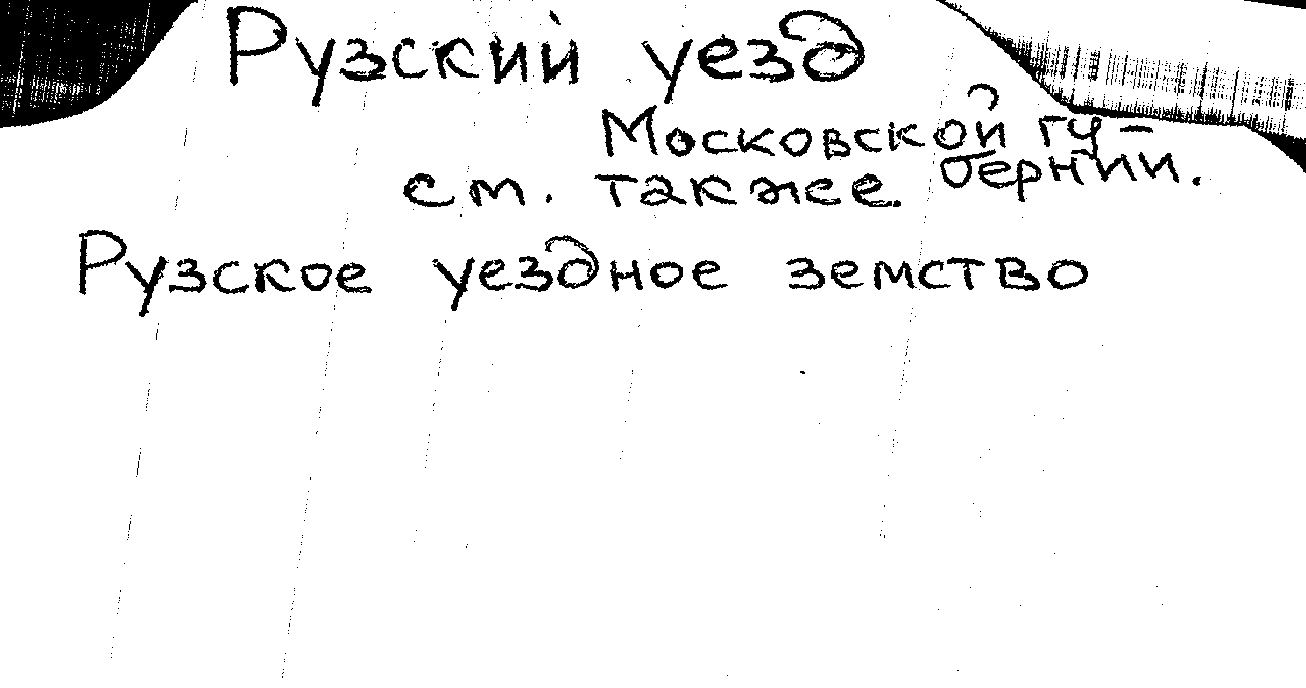 Рузский уезд
Московской гу-
бернии.
см. также
Рузское уездное земство